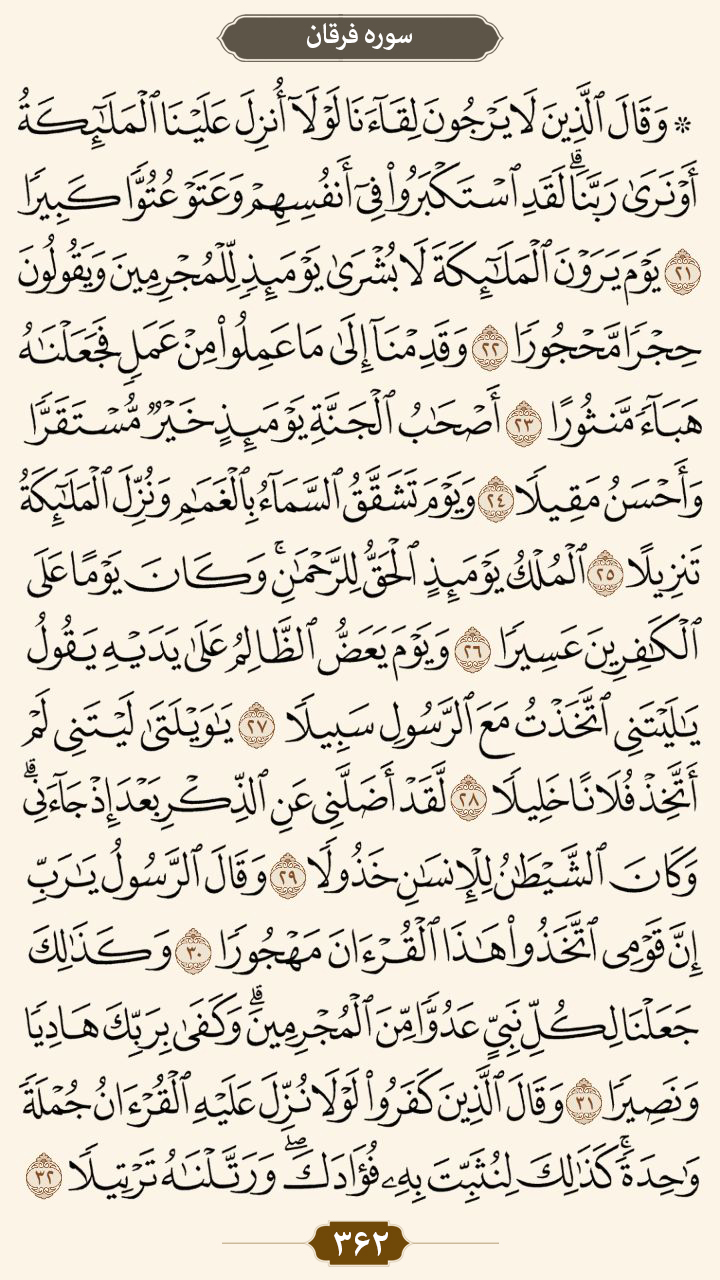 سوره فرقان
۞ وَقَالَ ٱلَّذِينَ لَا يَرۡجُونَ لِقَآءَنَا لَوۡلَآ أُنزِلَ عَلَيۡنَا ٱلۡمَلَـٰٓئِكَةُ
أَوۡ نَرَىٰ رَبَّنَاۗ لَقَدِ ٱسۡتَكۡبَرُواْ فِيٓ أَنفُسِهِمۡ وَعَتَوۡ عُتُوّٗا كَبِيرٗا
٢١ يَوۡمَ يَرَوۡنَ ٱلۡمَلَـٰٓئِكَةَ لَا بُشۡرَىٰ يَوۡمَئِذٖ لِّلۡمُجۡرِمِينَ وَيَقُولُونَ
حِجۡرٗا مَّحۡجُورٗا ٢٢ وَقَدِمۡنَآ إِلَىٰ مَا عَمِلُواْ مِنۡ عَمَلٖ فَجَعَلۡنَٰهُ
هَبَآءٗ مَّنثُورًا ٢٣ أَصۡحَٰبُ ٱلۡجَنَّةِ يَوۡمَئِذٍ خَيۡرٞ مُّسۡتَقَرّٗا
وَأَحۡسَنُ مَقِيلٗا ٢٤ وَيَوۡمَ تَشَقَّقُ ٱلسَّمَآءُ بِٱلۡغَمَٰمِ وَنُزِّلَ ٱلۡمَلَـٰٓئِكَةُ
تَنزِيلًا ٢٥ ٱلۡمُلۡكُ يَوۡمَئِذٍ ٱلۡحَقُّ لِلرَّحۡمَٰنِۚ وَكَانَ يَوۡمًا عَلَى
ٱلۡكَٰفِرِينَ عَسِيرٗا ٢٦ وَيَوۡمَ يَعَضُّ ٱلظَّالِمُ عَلَىٰ يَدَيۡهِ يَقُولُ
يَٰلَيۡتَنِي ٱتَّخَذۡتُ مَعَ ٱلرَّسُولِ سَبِيلٗا ٢٧ يَٰوَيۡلَتَىٰ لَيۡتَنِي لَمۡ
أَتَّخِذۡ فُلَانًا خَلِيلٗا ٢٨ لَّقَدۡ أَضَلَّنِي عَنِ ٱلذِّكۡرِ بَعۡدَ إِذۡ جَآءَنِيۗ
وَكَانَ ٱلشَّيۡطَٰنُ لِلۡإِنسَٰنِ خَذُولٗا ٢٩ وَقَالَ ٱلرَّسُولُ يَٰرَبِّ
إِنَّ قَوۡمِي ٱتَّخَذُواْ هَٰذَا ٱلۡقُرۡءَانَ مَهۡجُورٗا ٣٠ وَكَذَٰلِكَ
جَعَلۡنَا لِكُلِّ نَبِيٍّ عَدُوّٗا مِّنَ ٱلۡمُجۡرِمِينَۗ وَكَفَىٰ بِرَبِّكَ هَادِيٗا
وَنَصِيرٗا ٣١ وَقَالَ ٱلَّذِينَ كَفَرُواْ لَوۡلَا نُزِّلَ عَلَيۡهِ ٱلۡقُرۡءَانُ جُمۡلَةٗ
وَٰحِدَةٗۚ كَذَٰلِكَ لِنُثَبِّتَ بِهِۦ فُؤَادَكَۖ وَرَتَّلۡنَٰهُ تَرۡتِيلٗا ٣٢
۳۶۲